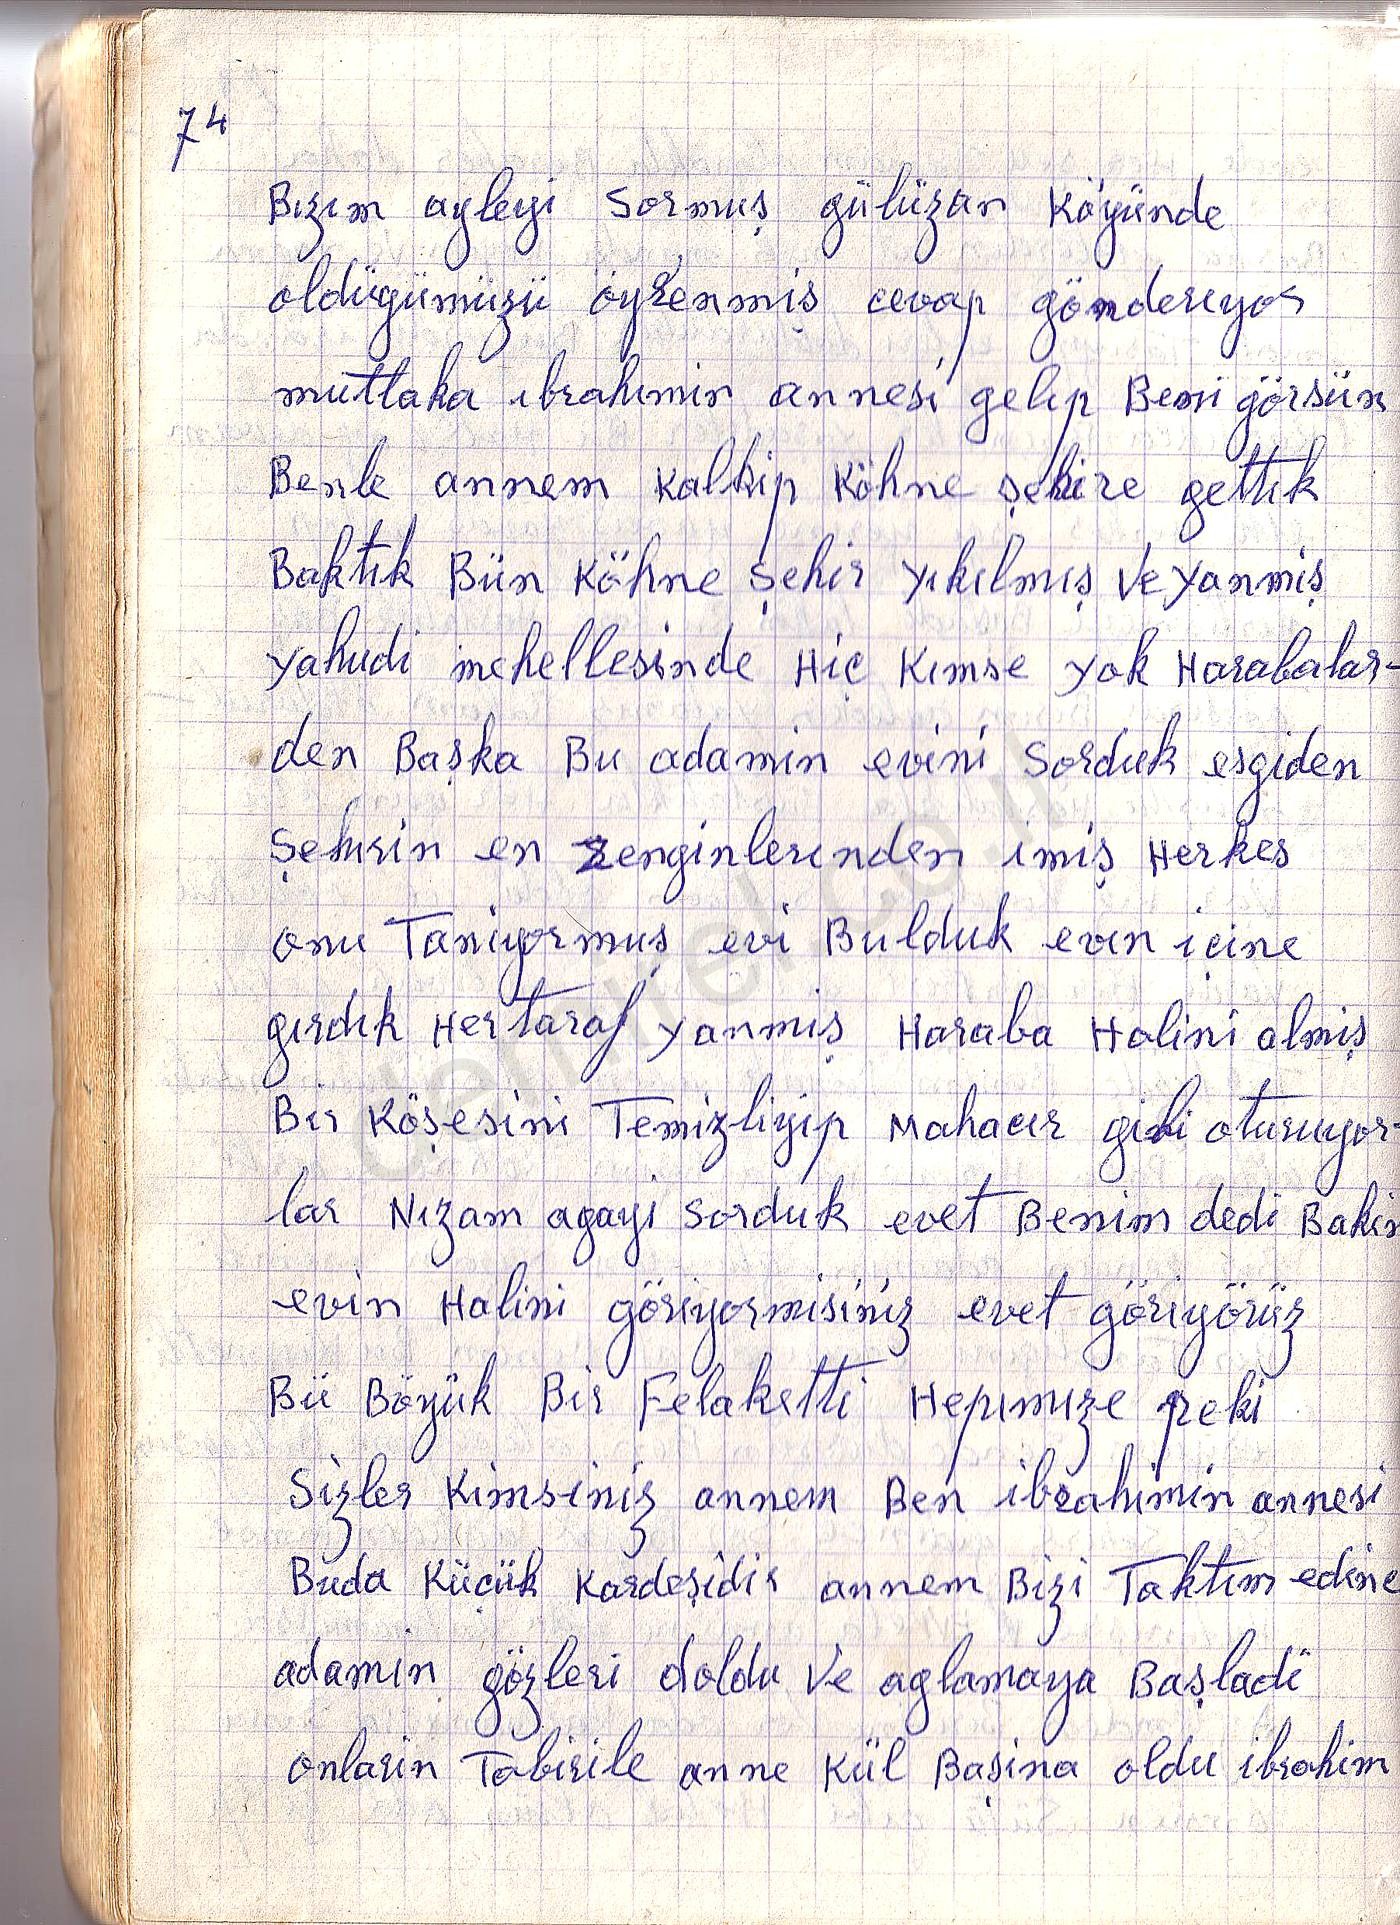 74
Bizim ayleyi sormuş gülüzan Köyünde
oldügümüzü öyrenmiş cevap gönderiyor
muttaka ibrahimin annesi gelip Beni görsün
Benle annem Kalkip Köhne şehire gettik
Baktik Bün Köhne şehir yıkılmış ve yanmiş
yahudi mehellesinde Hiç Kimse yok Harabalar-
den Başka Bu adamin evini sorduk esgiden
şehirin en zenginlerinden imiş Herkes
onu Taniyormuş evi Bulduk evin içine
girdik Hertaraf yanmiş Haraba Halini almiş
Bir Köşesini Temizliyip Mahacir gibi oturuyor-
lar Nizam agayi sorduk evet Benim dedi Bakin
evin Halini göriyormisiniz evet göriyörüz
Bü Böyük Bir Felaketti Hepimize peki
Sizler Kimsiniz annem Ben ibrahimin annesi
Buda Küçük Kardeşidir annem Bizi Taktim edince
adamin gözleri doldu ve aglamaya Başladi
onlarin Tabirile anne Kül Başina oldu ibrahim
demirel.co.il